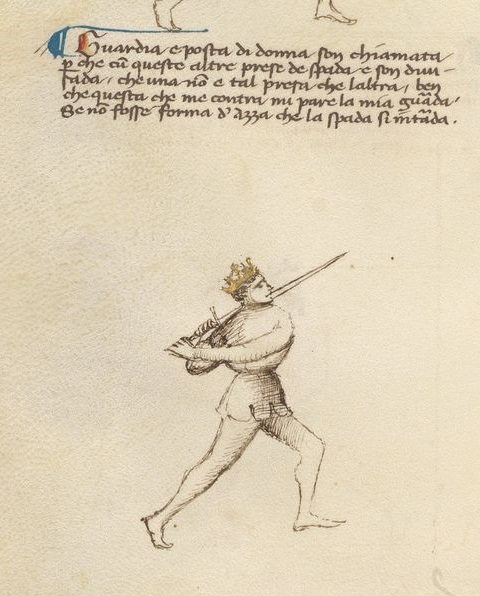 Guardia e posta di donna son chiamata
p che cũ queste altre prese de spada e son divi-
sada, che una nõ e tal presa che laltra, ben
che questa che me contra mi pare la mia guãda.
Se nõ fosse forma d'Azza che la spada si intẽda.